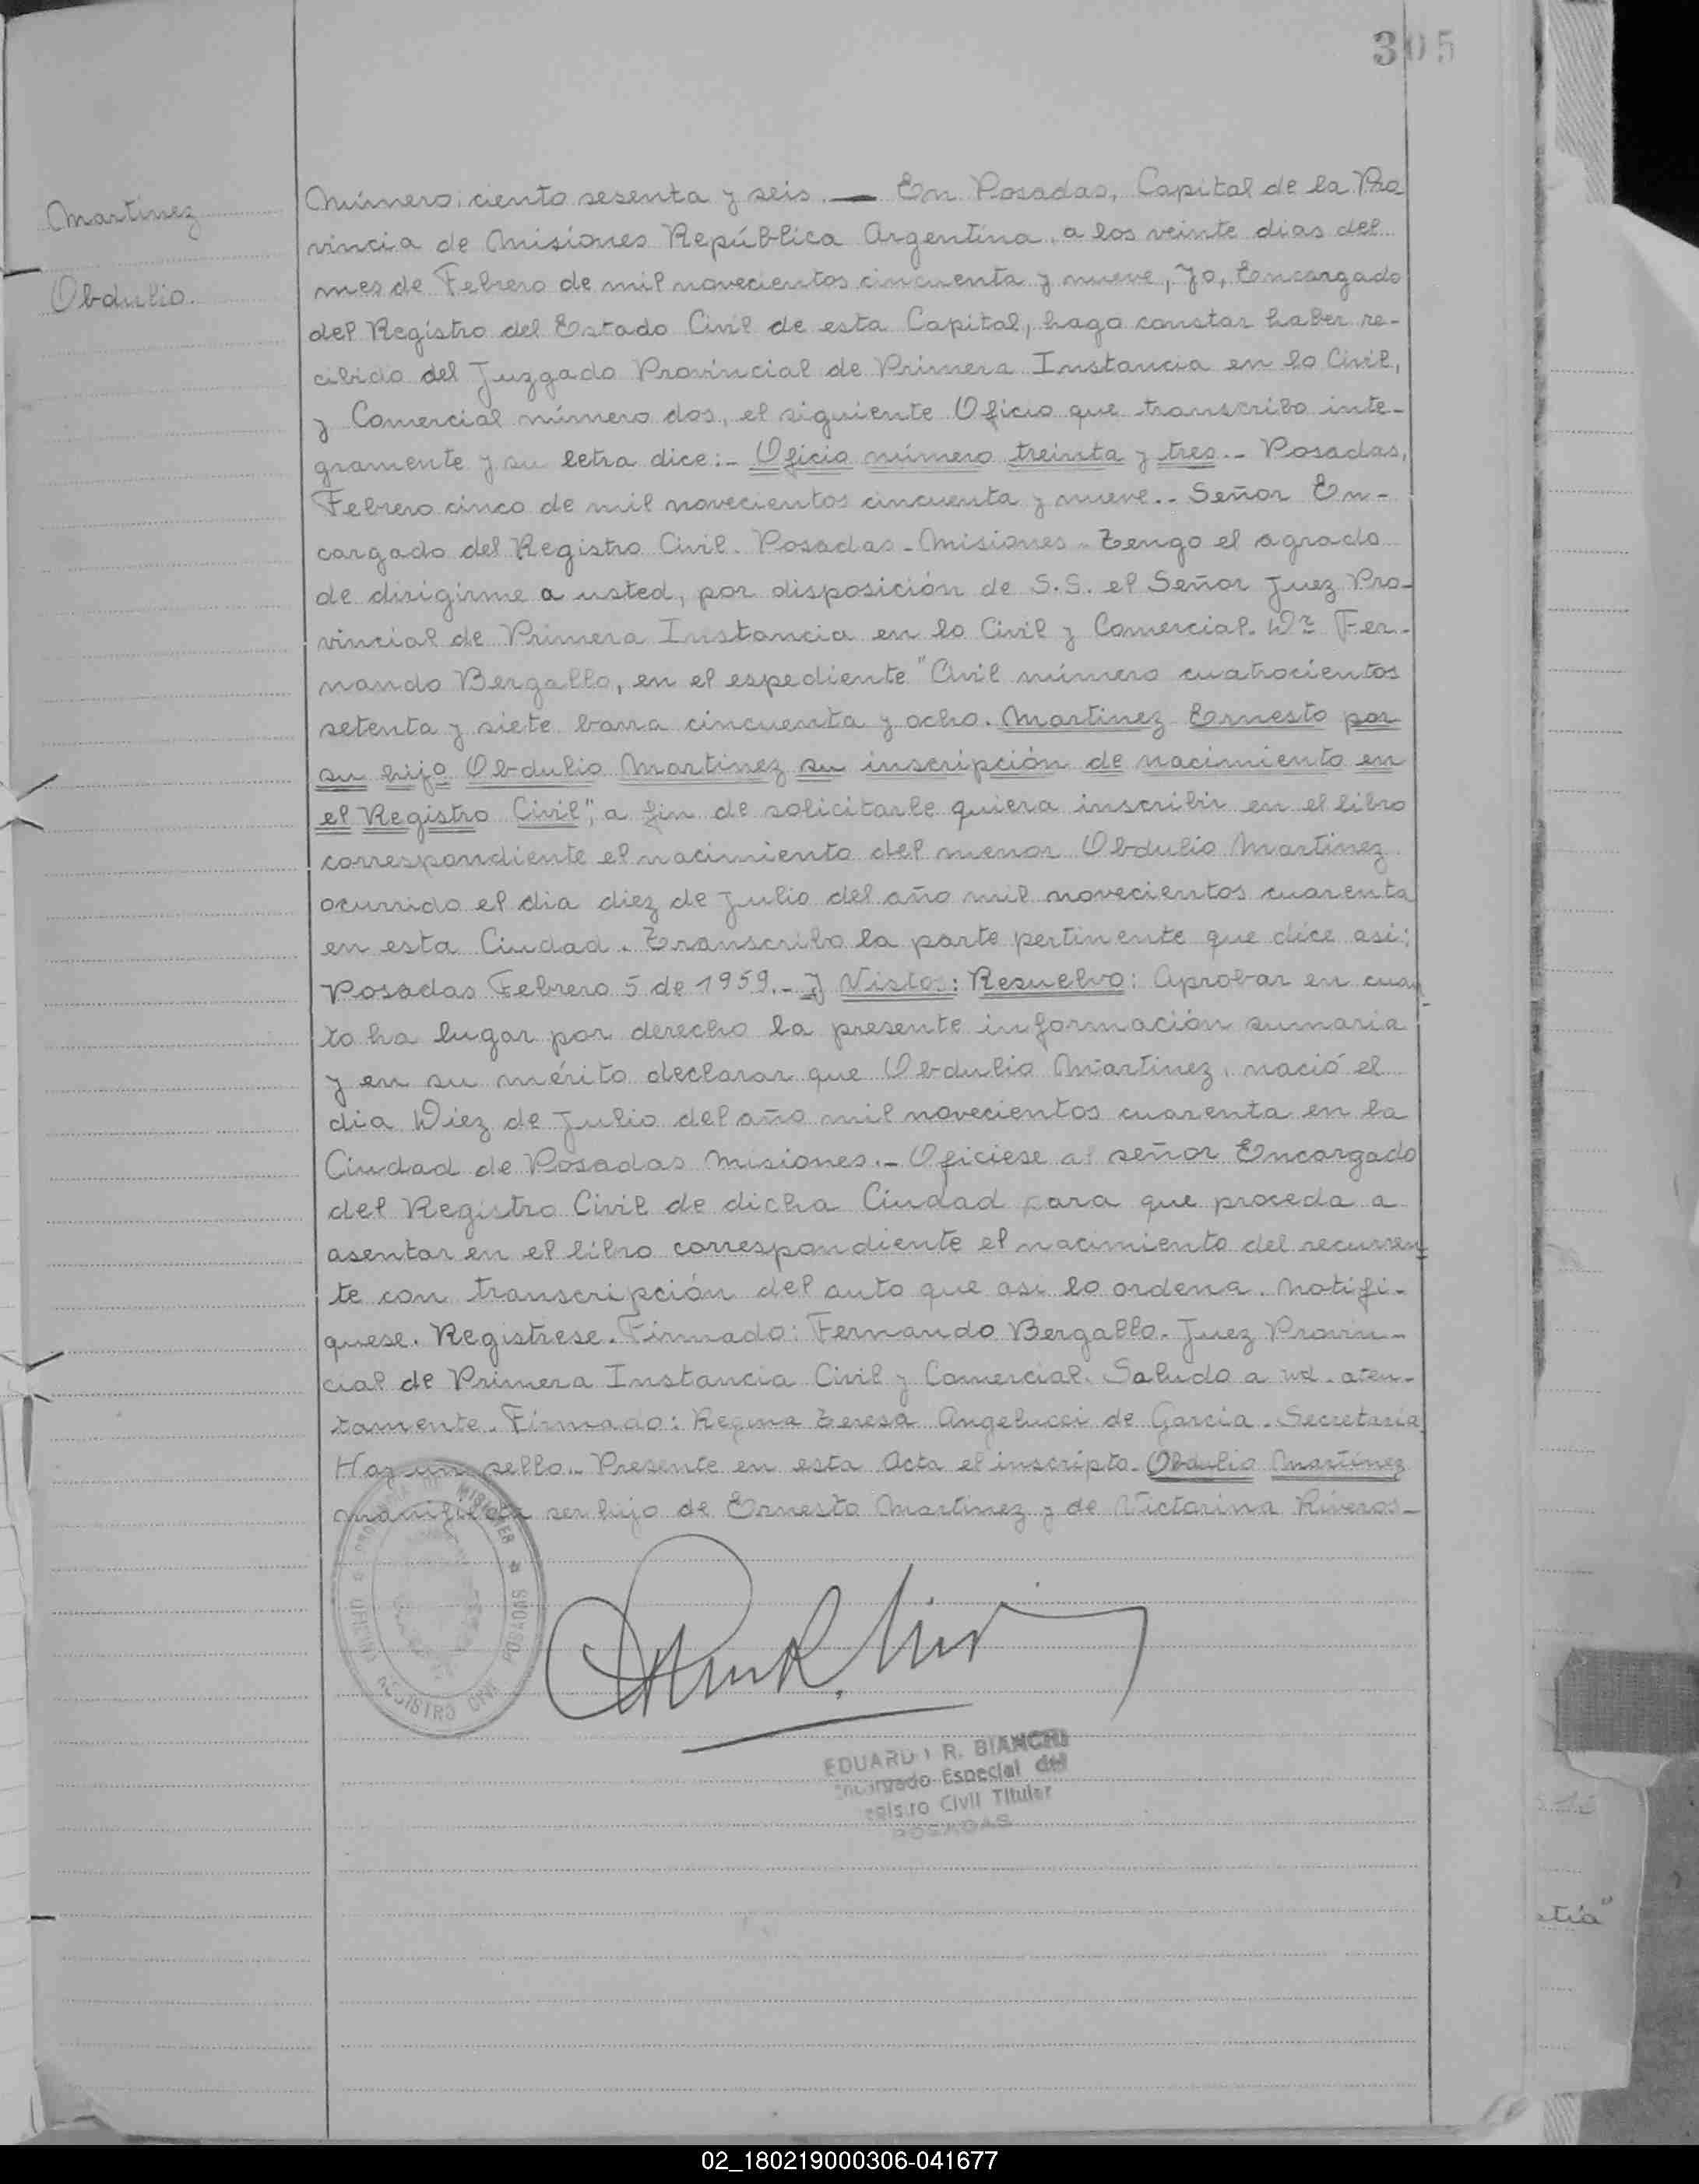 305
Martinez
Obdulio.
Número ciento sesenta y seis. — En Posadas, Capital de la Pro
vincia de Misiones República Argentina, a los veinte dias del
mes de Febrero de mil novecientos cincuenta y nueve, Yo, Encargado
del Registro del Estado Civil de esta Capital, hago constar haber re-
cibido del Juzgado Provincial de Primera Instancia en lo Civil,
y Comercial número dos, el siguiente Oficio que transcribo inte-
gramente y su letra dice:- Oficio número treinta y tres.- Posadas,
Febrero cinco de mil novecientos cincuenta y nueve.- Señor En-
cargado del Registro Civil. Posadas - Misiones - Tengo el agrado
de dirigirme a usted, por disposición de S.S. el Señor Juez Pro-
vincial de Primera Instancia en lo Civil y Comercial. Dr Fer-
nando Bergallo, en el espediente "Civil número cuatrocientos
setenta y siete barra cincuenta y ocho. Martinez Ernesto por
su hijo Obdulio Martinez su inscripción de nacimiento en
el Registro Civil", a fin de solicitarle quiera inscribir en el libro
correspondiente el nacimiento del menor Obdulio Martinez
ocurrido el dia diez de Julio del año mil novecientos cuarenta
en esta Ciudad. Transcribo la parte pertinente que dice asi:
Posadas Febrero 5 de 1959.- Y Vistos: Resuelvo: Aprobar en cuan-
to ha lugar por derecho la presente información sumaria
y en su mérito declarar que Obdulio Martinez, nació el
dia Diez de Julio del año mil novecientos cuarenta en la
Ciudad de Posadas Misiones.- Oficiese al señor Encargado
del Registro Civil de dicha Ciudad para que proceda a
asentar en el libro correspondiente el nacimiento del recurren-
te con transcripción del auto que asi lo ordena. Notifi-
quese. Registrese. Firmado: Fernando Bergallo. Juez Provin-
cial de Primera Instancia Civil y Comercial. Saludo a ud. aten-
tamente. Firmado: Regina Teresa Angelucci de Garcia. Secretaria
Hay un sello.- Presente en esta Acta el inscripto. Obdulio Martinez
manifiesta ser hijo de Ernesto Martinez y de Victorina Riveros-
PROVINCIA DE MISIONES * POSADAS
OFICINA REGISTRO CIVIL
EDUARDO R. BIANCHI
Encargado Especial del
Registro Civil Titular
POSADAS
stia"
02_180219000306-041677